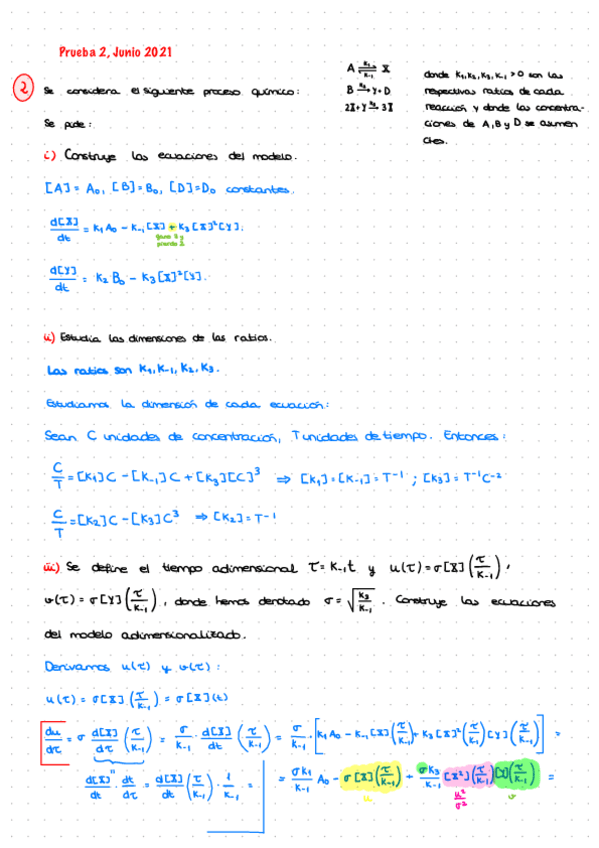 Prueba 2, Junio 2021
2 Se considera el siguiente proceso químico:
A ⇌ X (K₁, K₋₁)
B →(K₂) Y + D
2X + Y →(K₃) 3X
donde K₁, K₂, K₃, K₋₁ > 0 son las
respectivas ratios de cada
reacción y donde las concentra-
ciones de A, B y D se asumen
ctes.
Se pide:
i) Construye las ecuaciones del modelo.
[A] = A₀, [B] = B₀, [D] = D₀ constantes.
d[X]/dt = K₁A₀ - K₋₁[X] + K₃[X]²[Y].
gano 3 y
pierdo 2
d[Y]/dt = K₂B₀ - K₃[X]²[Y].
ii) Estudia las dimensiones de las ratios.
Las ratios son K₁, K₋₁, K₂, K₃.
Estudiamos la dimensión de cada ecuación:
Sean C unidades de concentración, T unidades de tiempo. Entonces:
C/T = [K₁]C - [K₋₁]C + [K₃][C]³ ⇒ [K₁] = [K₋₁] = T⁻¹ ; [K₃] = T⁻¹C⁻²
C/T = [K₂]C - [K₃]C³ ⇒ [K₂] = T⁻¹
iii) Se define el tiempo adimensional τ = K₋₁t y u(τ) = σ[X](τ/K₋₁),
v(τ) = σ[Y](τ/K₋₁), donde hemos denotado σ = √(K₃/K₋₁). Construye las ecuaciones
del modelo adimensionalizado.
Derivamos u(τ) y v(τ):
u(τ) = σ[X](τ/K₋₁) = σ[X](t)
du/dτ = σ d[X]/dτ (τ/K₋₁) = σ/K₋₁ · d[X]/dt (τ/K₋₁) = σ/K₋₁ · [K₁A₀ - K₋₁[X](τ/K₋₁) + K₃[X]²(τ/K₋₁)[Y](τ/K₋₁)] =
d[X]/dt · dt/dτ = d[X]/dt (τ/K₋₁) · 1/K₋₁ =
= σK₁/K₋₁ A₀ - σ[X](τ/K₋₁) + σK₃/K₋₁ [X²](τ/K₋₁)[Y](τ/K₋₁) =
u u²/σ² v